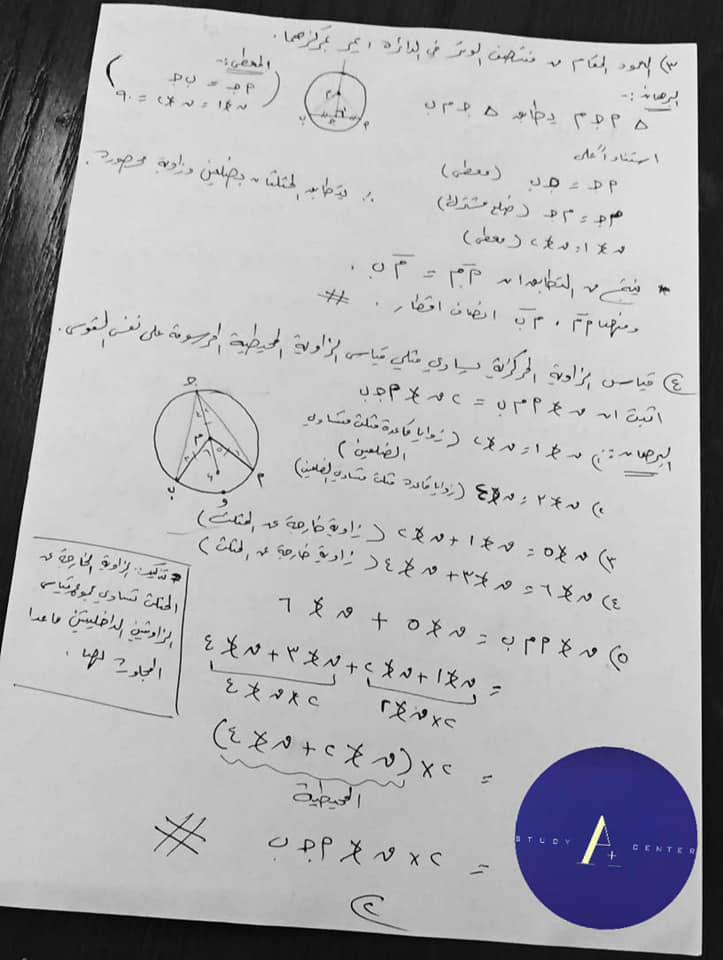 ٣) العمود المقام من منتصف الوتر في الدائرة يمر بمركزها.
البرهان :-
المعطى :-
أ هـ = ب هـ
ق∢١ = ق∢٢ = ٩٠
م
ب هـ أ
△ أ هـ م يطابق △ ب هـ م
استناداً على
أ هـ = هـ ب (معطى)
م هـ = م هـ (ضلع مشترك)
ق∢١ = ق∢٢ (معطى)
∴ يتطابق المثلثان بضلعين وزاوية محصورة.
* ينتج من التطابق ان م أ = م ب .
ومنها م أ ، م ب انصاف اقطار . #
٤) قياس الزاوية المركزية يساوي مثلي قياس الزاوية المحيطية المرسومة على نفس القوس.
اثبت ان ق∢أ م ب = ٢ ق∢أ جـ ب
البرهان :- ١) ق∢١ = ق∢٢ (زوايا قاعدة مثلث متساوي
الضلعين)
٢) ق∢٣ = ق∢٤ (زوايا قاعدة مثلث متساوي الضلعين)
٣) ق∢٥ = ق∢١ + ق∢٢ (زاوية خارجة عن المثلث)
٤) ق∢٦ = ق∢٣ + ق∢٤ (زاوية خارجة عن المثلث)
٥) ق∢أ م ب = ق∢٥ + ق∢٦
= ق∢١ + ق∢٢ + ق∢٣ + ق∢٤
٢×ق∢٢ ٢×ق∢٤
= ٢×(ق∢٢ + ق∢٤)
المحيطية
= ٢×ق∢أ جـ ب #
٢
جـ
م
ب و أ
* تذكير: الزاوية الخارجة عن
المثلث تساوي مجموع قياس
الزاويتين الداخليتين ماعدا
المجاورة لها .
STUDY A+ CENTER